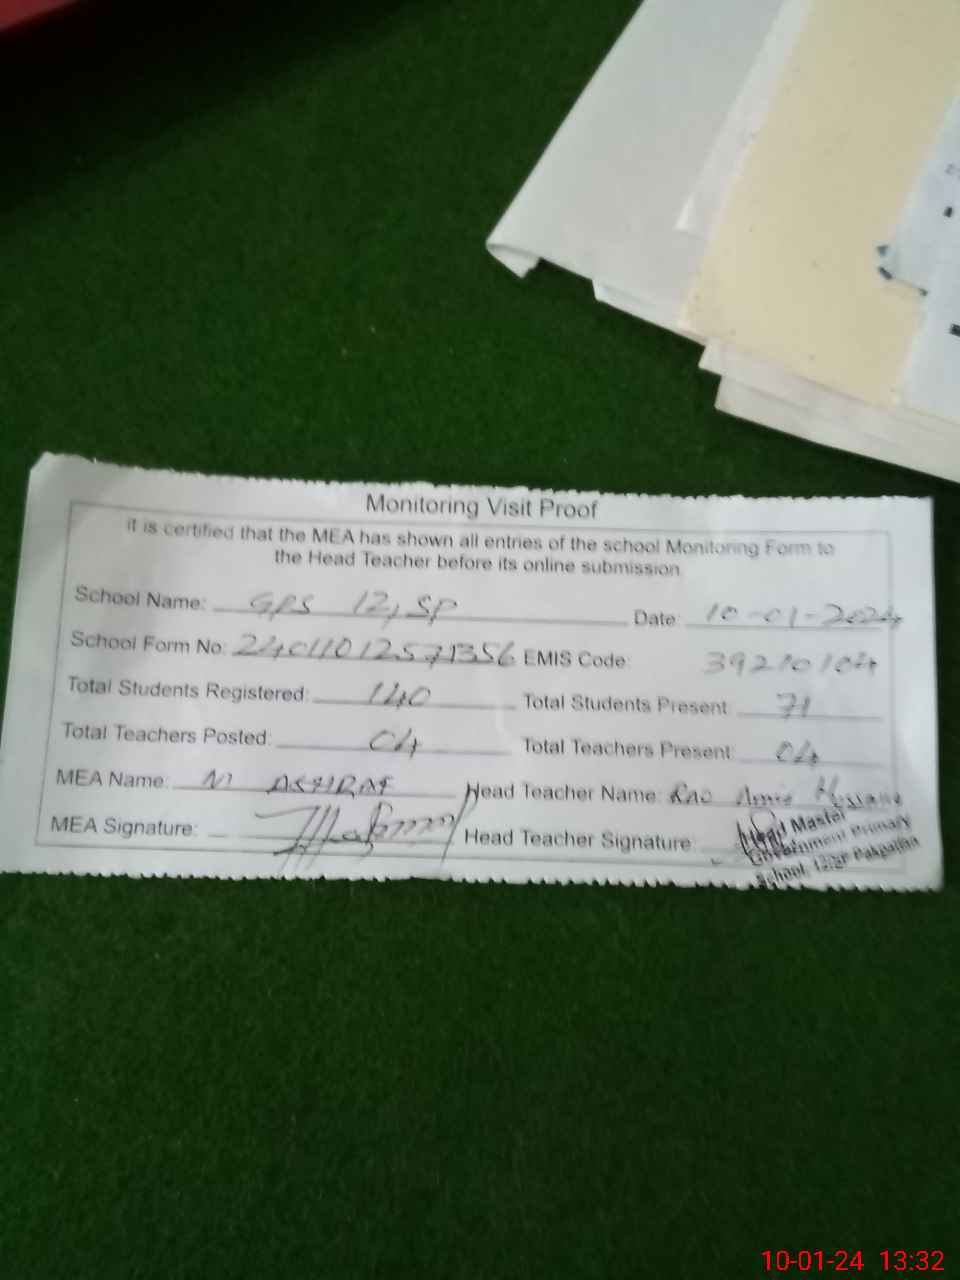 Monitoring Visit Proof
it is certified that the MEA has shown all entries of the school Monitoring Form to
the Head Teacher before its online submission
School Name: GPS 12, SP Date: 10-01-2024
School Form No: 24011012571356 EMIS Code: 39210104
Total Students Registered: 140 Total Students Present: 71
Total Teachers Posted: 04 Total Teachers Present: 04
MEA Name: M ASHRAF Head Teacher Name: Rao
MEA Signature: Head Teacher Signature:
Head Master
Government Primary
School, 12/SP Pakpattan
10-01-24 13:32